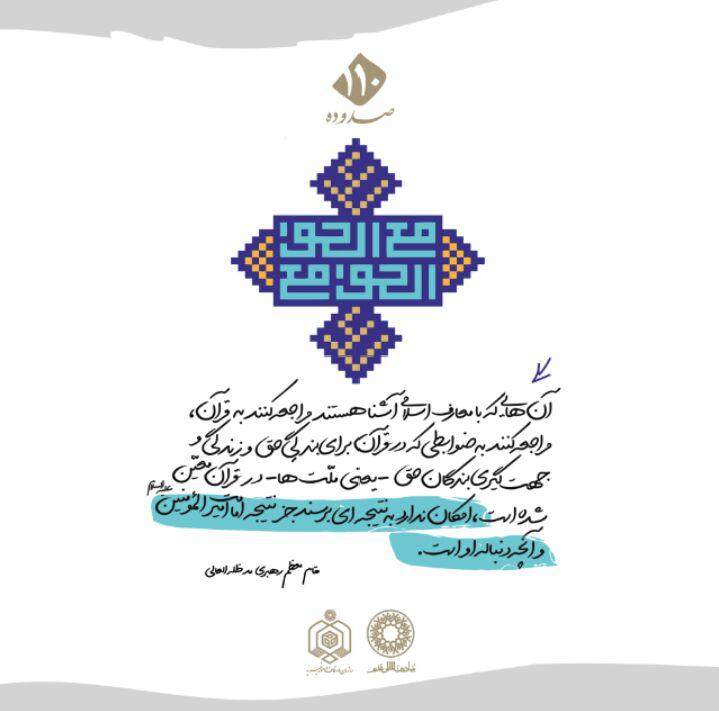 ۱۱۰
صدوده
مع الحق
الحق مع
آن‌هایی که با معارف اسلامی آشنا هستند مراجعه کنند به قرآن،
مراجعه کنند به ضوابطی که در قرآن برای بندگی حق و زندگی و
جهت گیری بندگان حق - یعنی ملّت ها - در قرآن معیّن
شده است، امکان ندارد به نتیجه ای برسند جز نتیجه امامت امیرالمؤمنین علیه‌السلام
و آنچه دنباله او است.
مقام معظم رهبری مدظله العالی